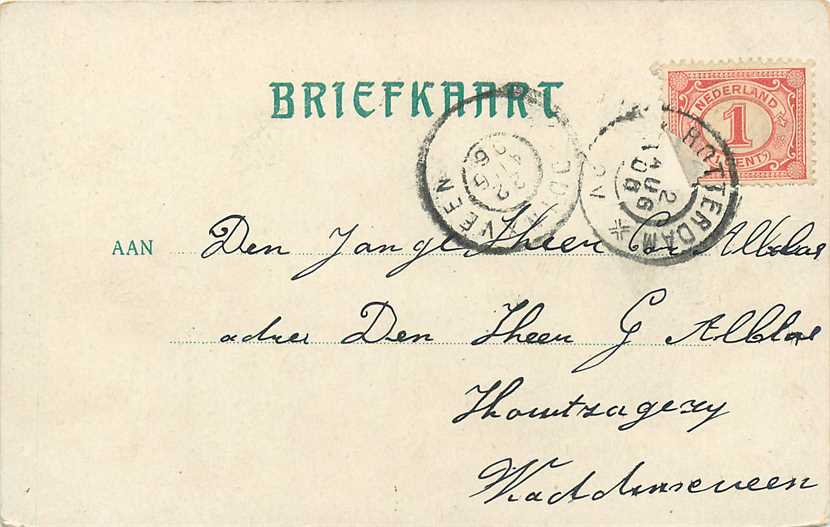 BRIEFKAART
NEDERLAND
1
CENT
ROTTERDAM
2 AUG 06
VEEN
AAN Den Jonge Heer Cor Alblas
adres Den Heer G Alblas
Houtzagery
Waddinxveen